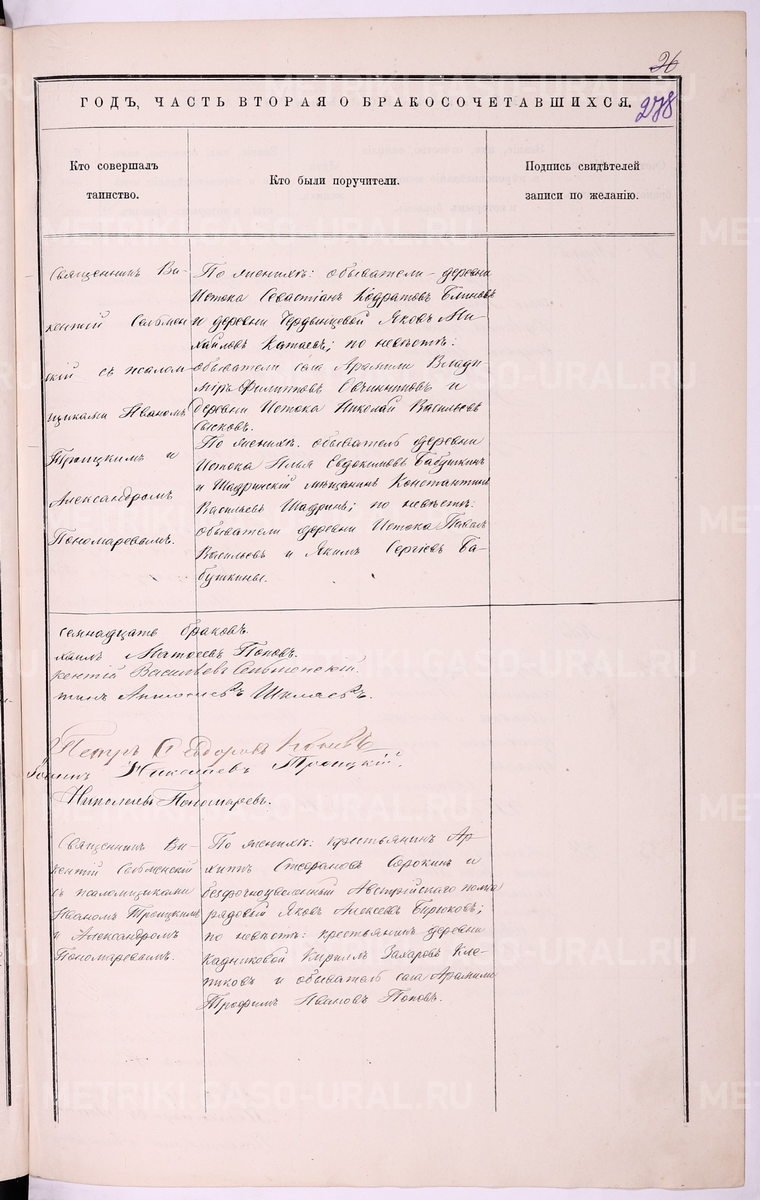 26
278
ГОДЪ, ЧАСТЬ ВТОРАЯ О БРАКОСОЧЕТАВШИХСЯ,
Кто совершалъ
таинство.
Кто были поручители.
Подпись свидѣтелей
записи по желанію.
Священникъ Ви-
кентій Сельмен
скій съ псалом-
щиками Иваномъ
Троицкимъ и
Александромъ
Пономаревымъ.
По женихѣ: обыватели деревни
Истока Севастіанъ Кодратовъ Блиновъ
и деревни Яковъ Ми-
хайловъ Катаевъ; по невѣстѣ:
обыватели села Арамили Влади
міръ Филипповъ Овчинниковъ и
деревни Истока Николай Васильевъ
По женихѣ: обыватель деревни
Истока Илья Евдокимовъ Бабушкинъ
и Шадринскій мѣщанинъ Константинъ
Васильевъ Шадринъ; по невѣстѣ:
обыватели деревни Истока Павелъ
Васильевъ и Якимъ Сергіевъ Ба-
бушкины.
семнадцать браковъ.
хаилъ Матѳеевъ Поповъ.
кентій Васильевъ Сельменскій.
тинъ
Петръ Ѳедоровъ
Николаевъ Троицкій.
Николаевъ Пономаревъ.
Священникъ Ви-
кентій Сельменскій
съ псаломщиками
Иваномъ Троицкимъ
и Александромъ
Пономаревымъ.
По женихѣ: крестьянинъ Ар-
хипъ Стефановъ Сорокинъ и
безсрочноотпускной Австрійскаго полка
рядовой Яковъ Алексѣевъ Бирюковъ;
по невѣстѣ: крестьянинъ деревни
Кадниковой Кириллъ Захаровъ Кле-
пиковъ и обыватель села Арамили
Трофимъ Ивановъ Поповъ.
METRIKI.GASO-URAL.RU